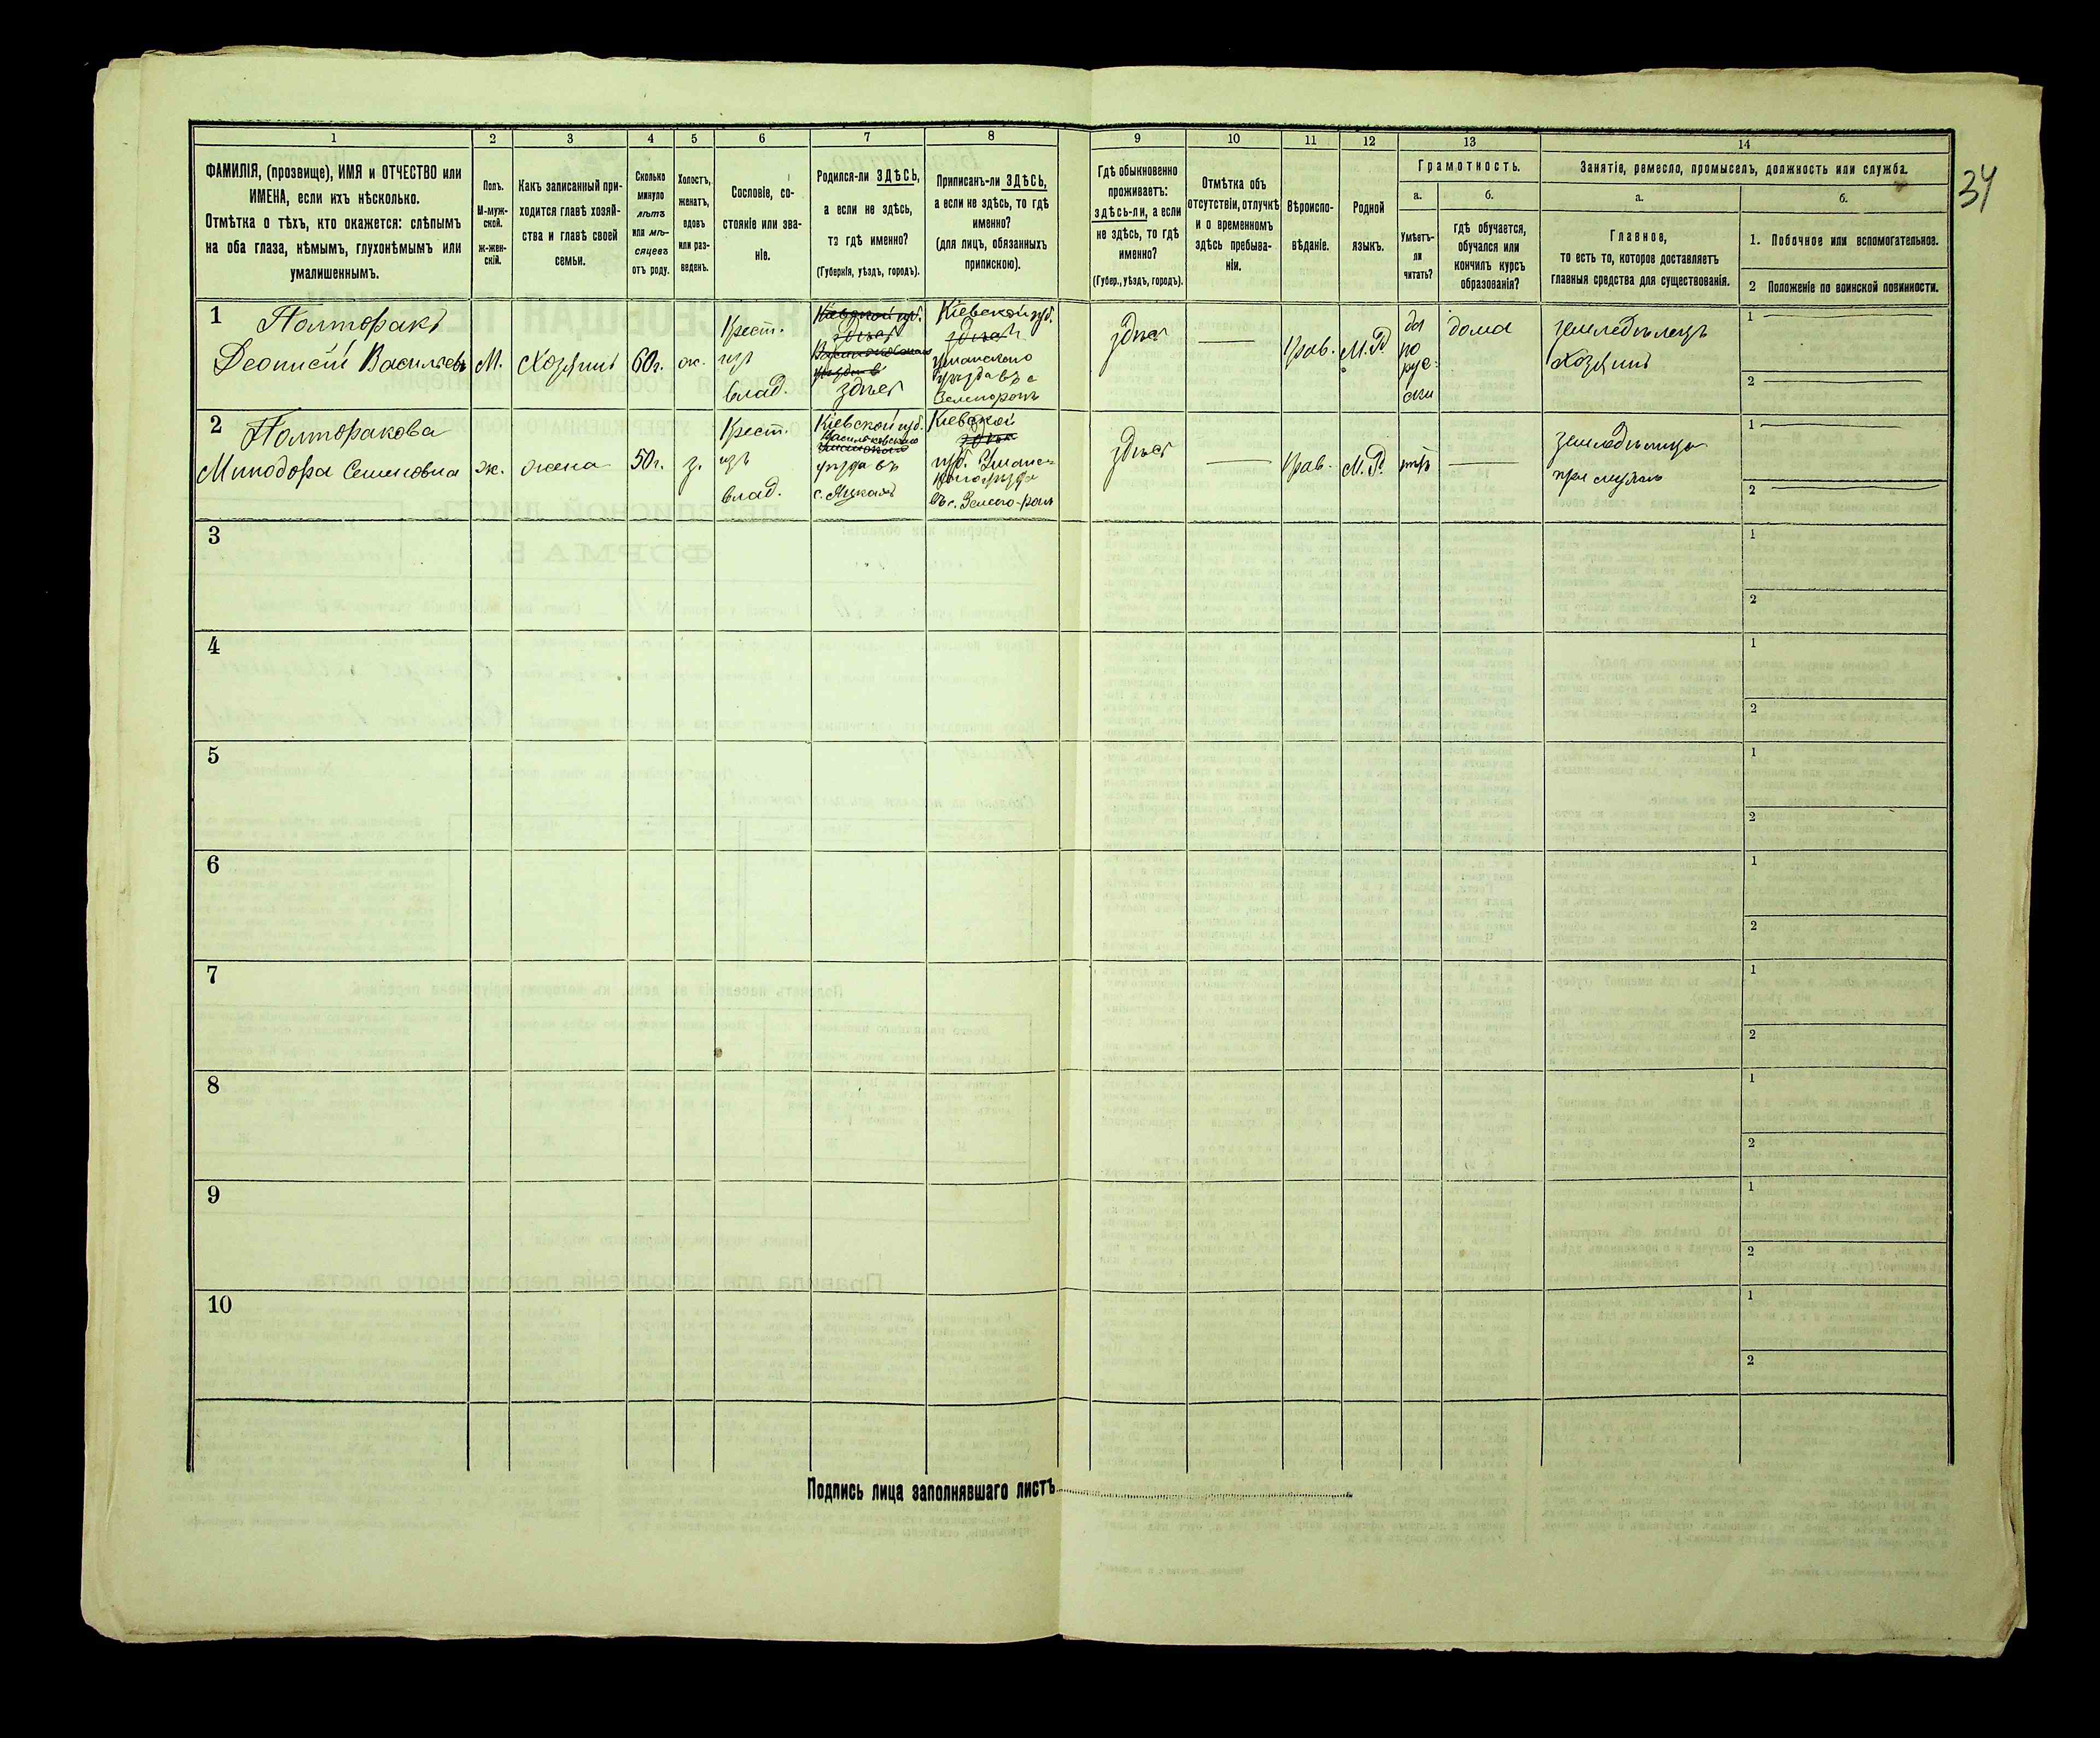 34
1
2
3
4
5
6
7
8
9
10
11
12
13
14
ФАМИЛІЯ, (прозвище), ИМЯ и ОТЧЕСТВО или
ИМЕНА, если ихъ нѣсколько.
Отмѣтка о тѣхъ, кто окажется: слѣпымъ
на оба глаза, нѣмымъ, глухонѣмымъ или
умалишеннымъ.
Полъ.
М-муж-
ской.
ж-жен-
скій.
Какъ записанный при-
ходится главѣ хозяй-
ства и главѣ своей
семьи.
Сколько
минуло
лѣтъ
или мѣ-
сяцевъ
отъ роду.
Холостъ,
женатъ,
вдовъ
или раз-
веденъ.
Сословіе, со-
стояніе или зва-
ніе.
Родился-ли ЗДѢСЬ,
а если не здѣсь,
то гдѣ именно?
(Губернія, уѣздъ, городъ).
Приписанъ-ли ЗДѢСЬ,
а если не здѣсь, то гдѣ
именно?
(для лицъ, обязанныхъ
припискою).
Гдѣ обыкновенно
проживаетъ:
здѣсь-ли, а если
не здѣсь, то гдѣ
именно?
(Губер., уѣздъ, городъ).
Отмѣтка объ
отсутствіи, отлучкѣ
и о временномъ
здѣсь пребыва-
ніи.
Вѣроиспо-
вѣданіе.
Родной
языкъ.
Грамотность.
а.
Умѣетъ-
ли
читать?
б.
гдѣ обучается,
обучался или
кончилъ курсъ
образованія?
Занятіе, ремесло, промыселъ, должность или служба.
а.
Главное,
то есть то, которое доставляетъ
главныя средства для существованія.
б.
1. Побочное или вспомогательное.
2 Положеніе по воинской повинности.
1
Полторакъ
Деонисій Васильевъ
М.
Хозяинъ
60г.
ж.
Крест.
изъ
влад.
Кіевской губ.
здѣсь
уѣзда въ
здѣсь
Кіевской губ.
здѣсь
Уманского
уѣзда въ с
здѣсь
Прав.
М. Р.
да
по
рус-
ски
дома
земледѣлецъ
Хозяинъ
1
2
2
Полторакова
Минодора Семеновна
ж.
жена
50г.
з.
Крест.
изъ
влад.
Кіевской губ.
Васильковского
Уманского
уѣзда въ
Кіевской
здѣсь
губ. Уман-
ского уѣзда
здѣсь
Прав.
М. Р.
нѣтъ
земледѣлица
при мужѣ
1
2
3
1
2
4
1
2
5
1
2
6
1
2
7
1
2
8
1
2
9
1
2
10
1
2
Подпись лица заполнявшаго листъ